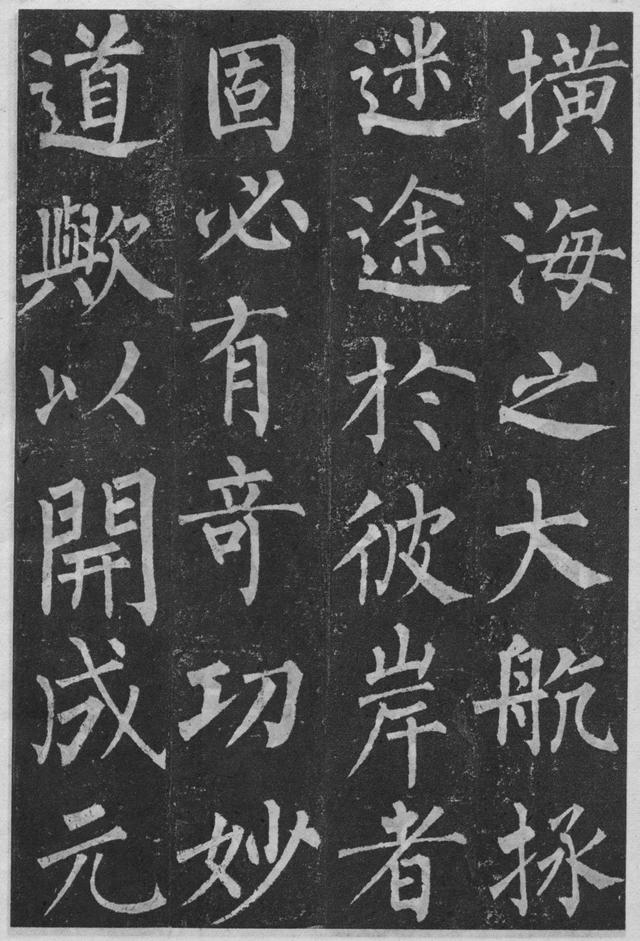 橫海之大航拯
迷途於彼岸者
固必有竒功妙
道歟以開成元